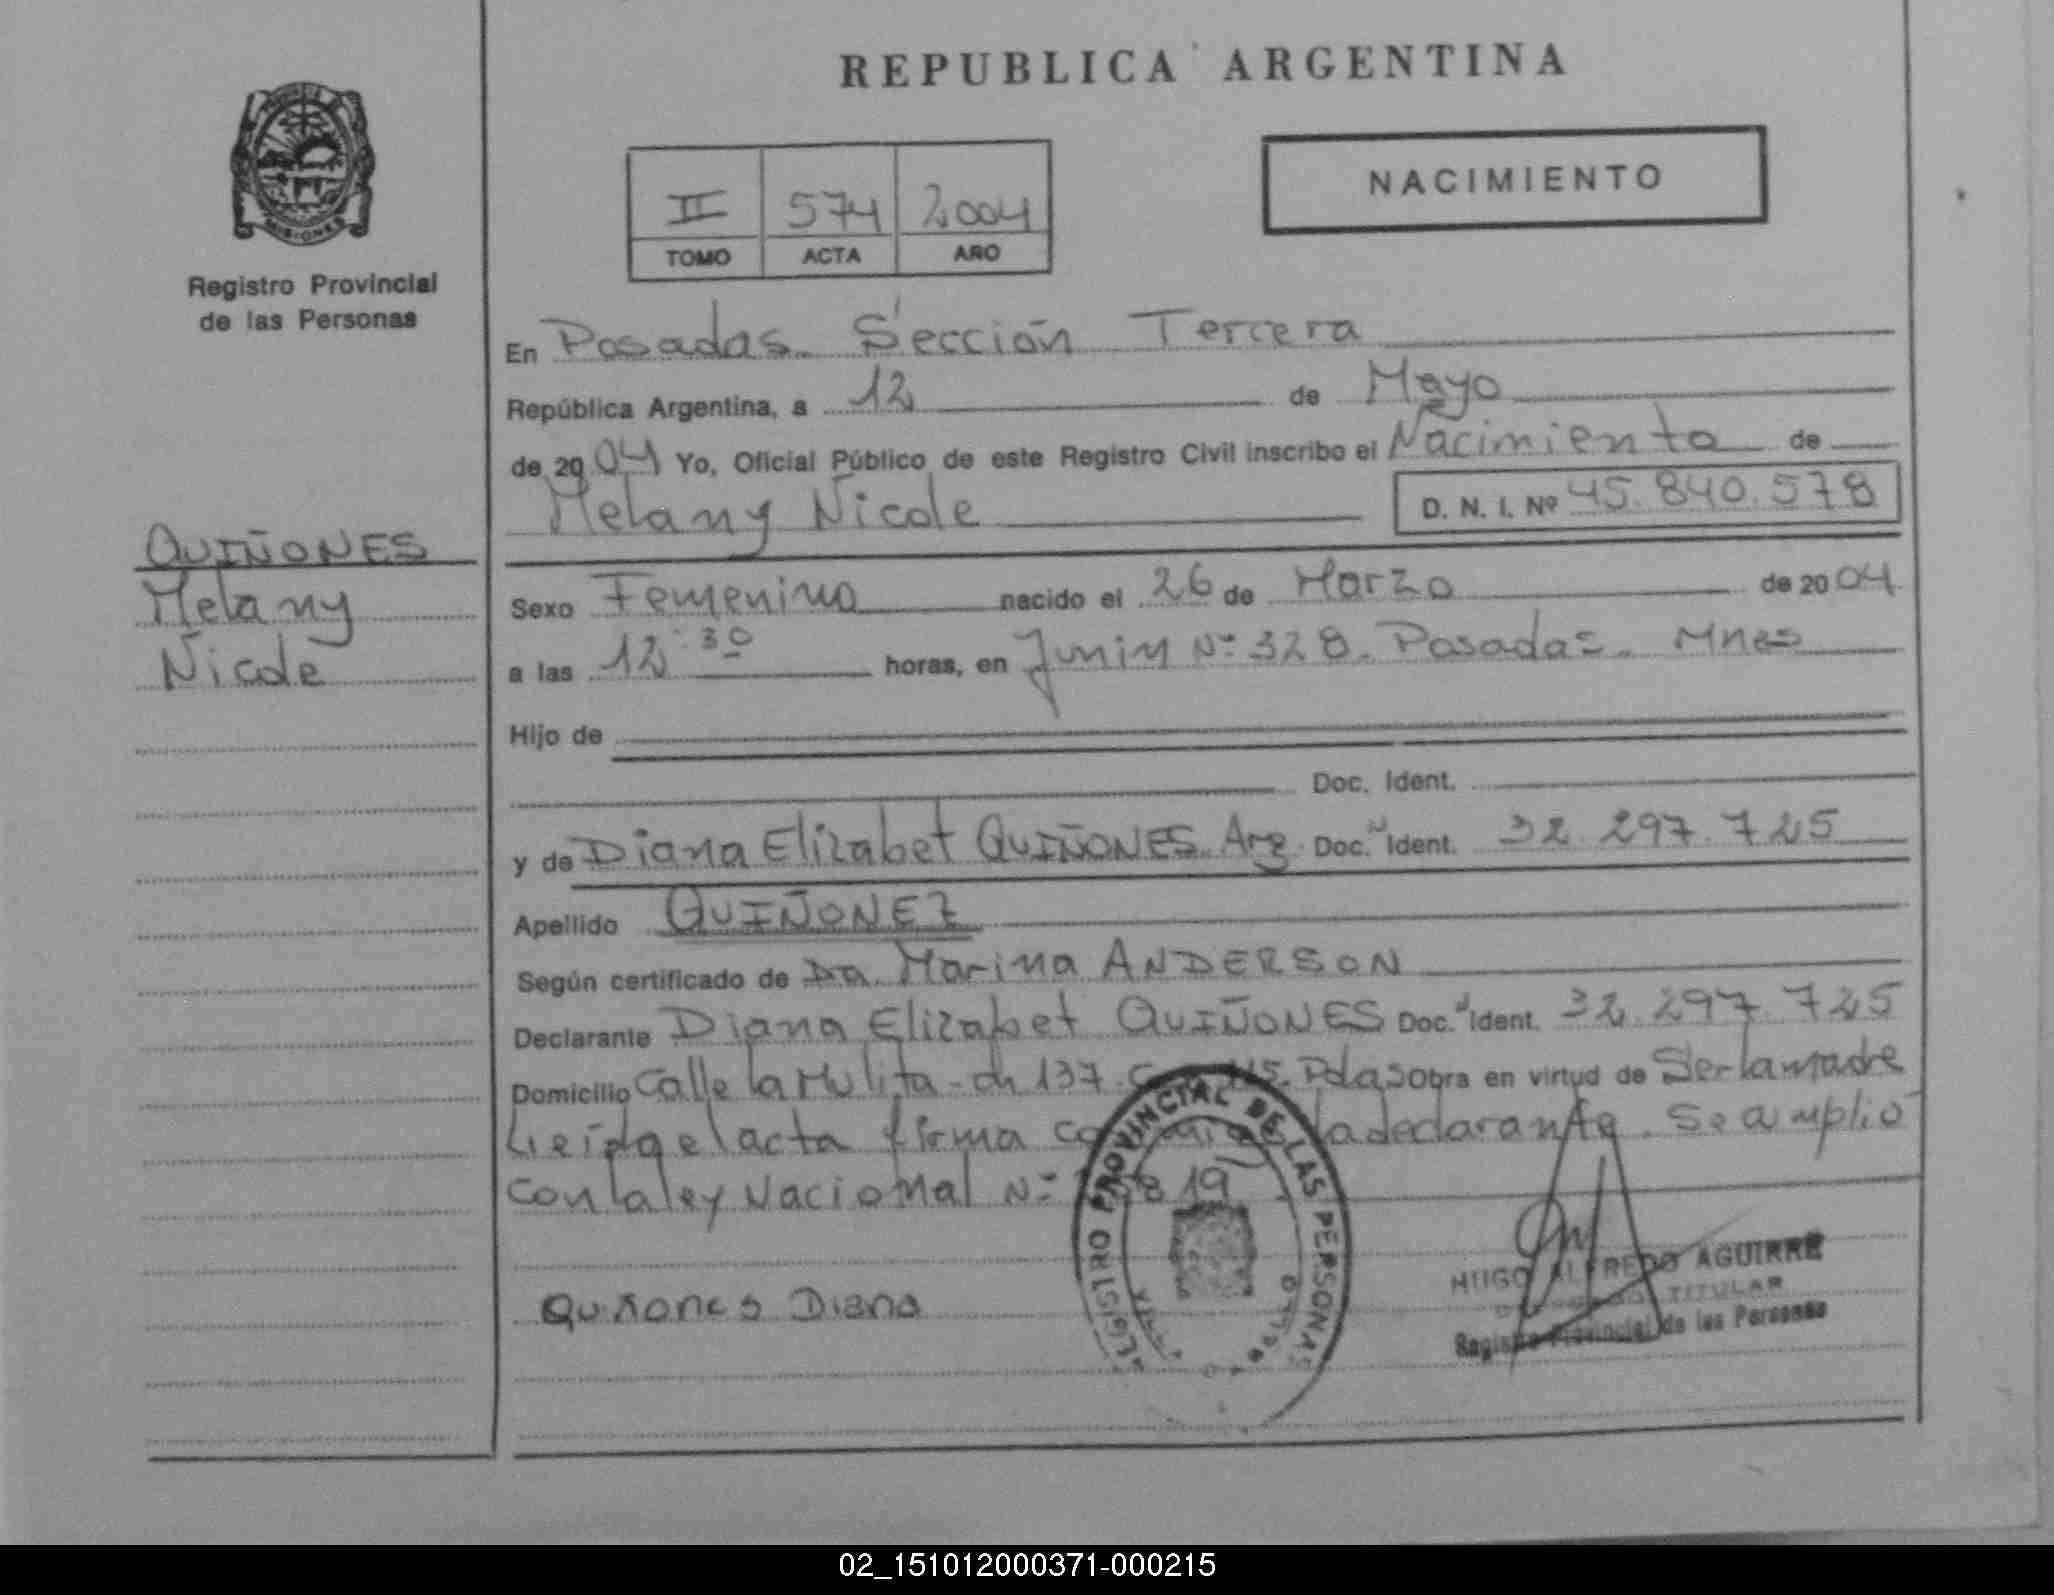 REPUBLICA ARGENTINA
NACIMIENTO
II 574 2004
TOMO ACTA AÑO
MISIONES
Registro Provincial
de las Personas
QUIÑONES
Melany
Nicole
En Posadas. Sección Tercera
República Argentina, a 12 de Mayo
de 2004 Yo, Oficial Público de este Registro Civil inscribo el Nacimiento de
Melany Nicole D. N. I. Nº 45.840.578
Sexo Femenino nacido el 26 de Marzo de 2004
a las 12:30 horas, en Junin Nº 328. Posadas. Mnes
Hijo de
Doc. Ident.
y de Diana Elizabet QUIÑONES. Arg. Doc. Ident. 32.297.725
Apellido QUIÑONEZ
Según certificado de Da. Marina ANDERSON
Declarante Diana Elizabet QUIÑONES Doc. Ident. 32.297.725
Domicilio Calle la Mulita - ch 137. Pdas Obra en virtud de Ser la madre
Leída el acta firma la declarante. Se amplió
con la ley Nacional Nº 819
Quiñones Diana
REGISTRO PROVINCIAL DE LAS PERSONAS
HUGO ALFREDO AGUIRRE
TITULAR
Registro Provincial de las Personas
02_151012000371-000215